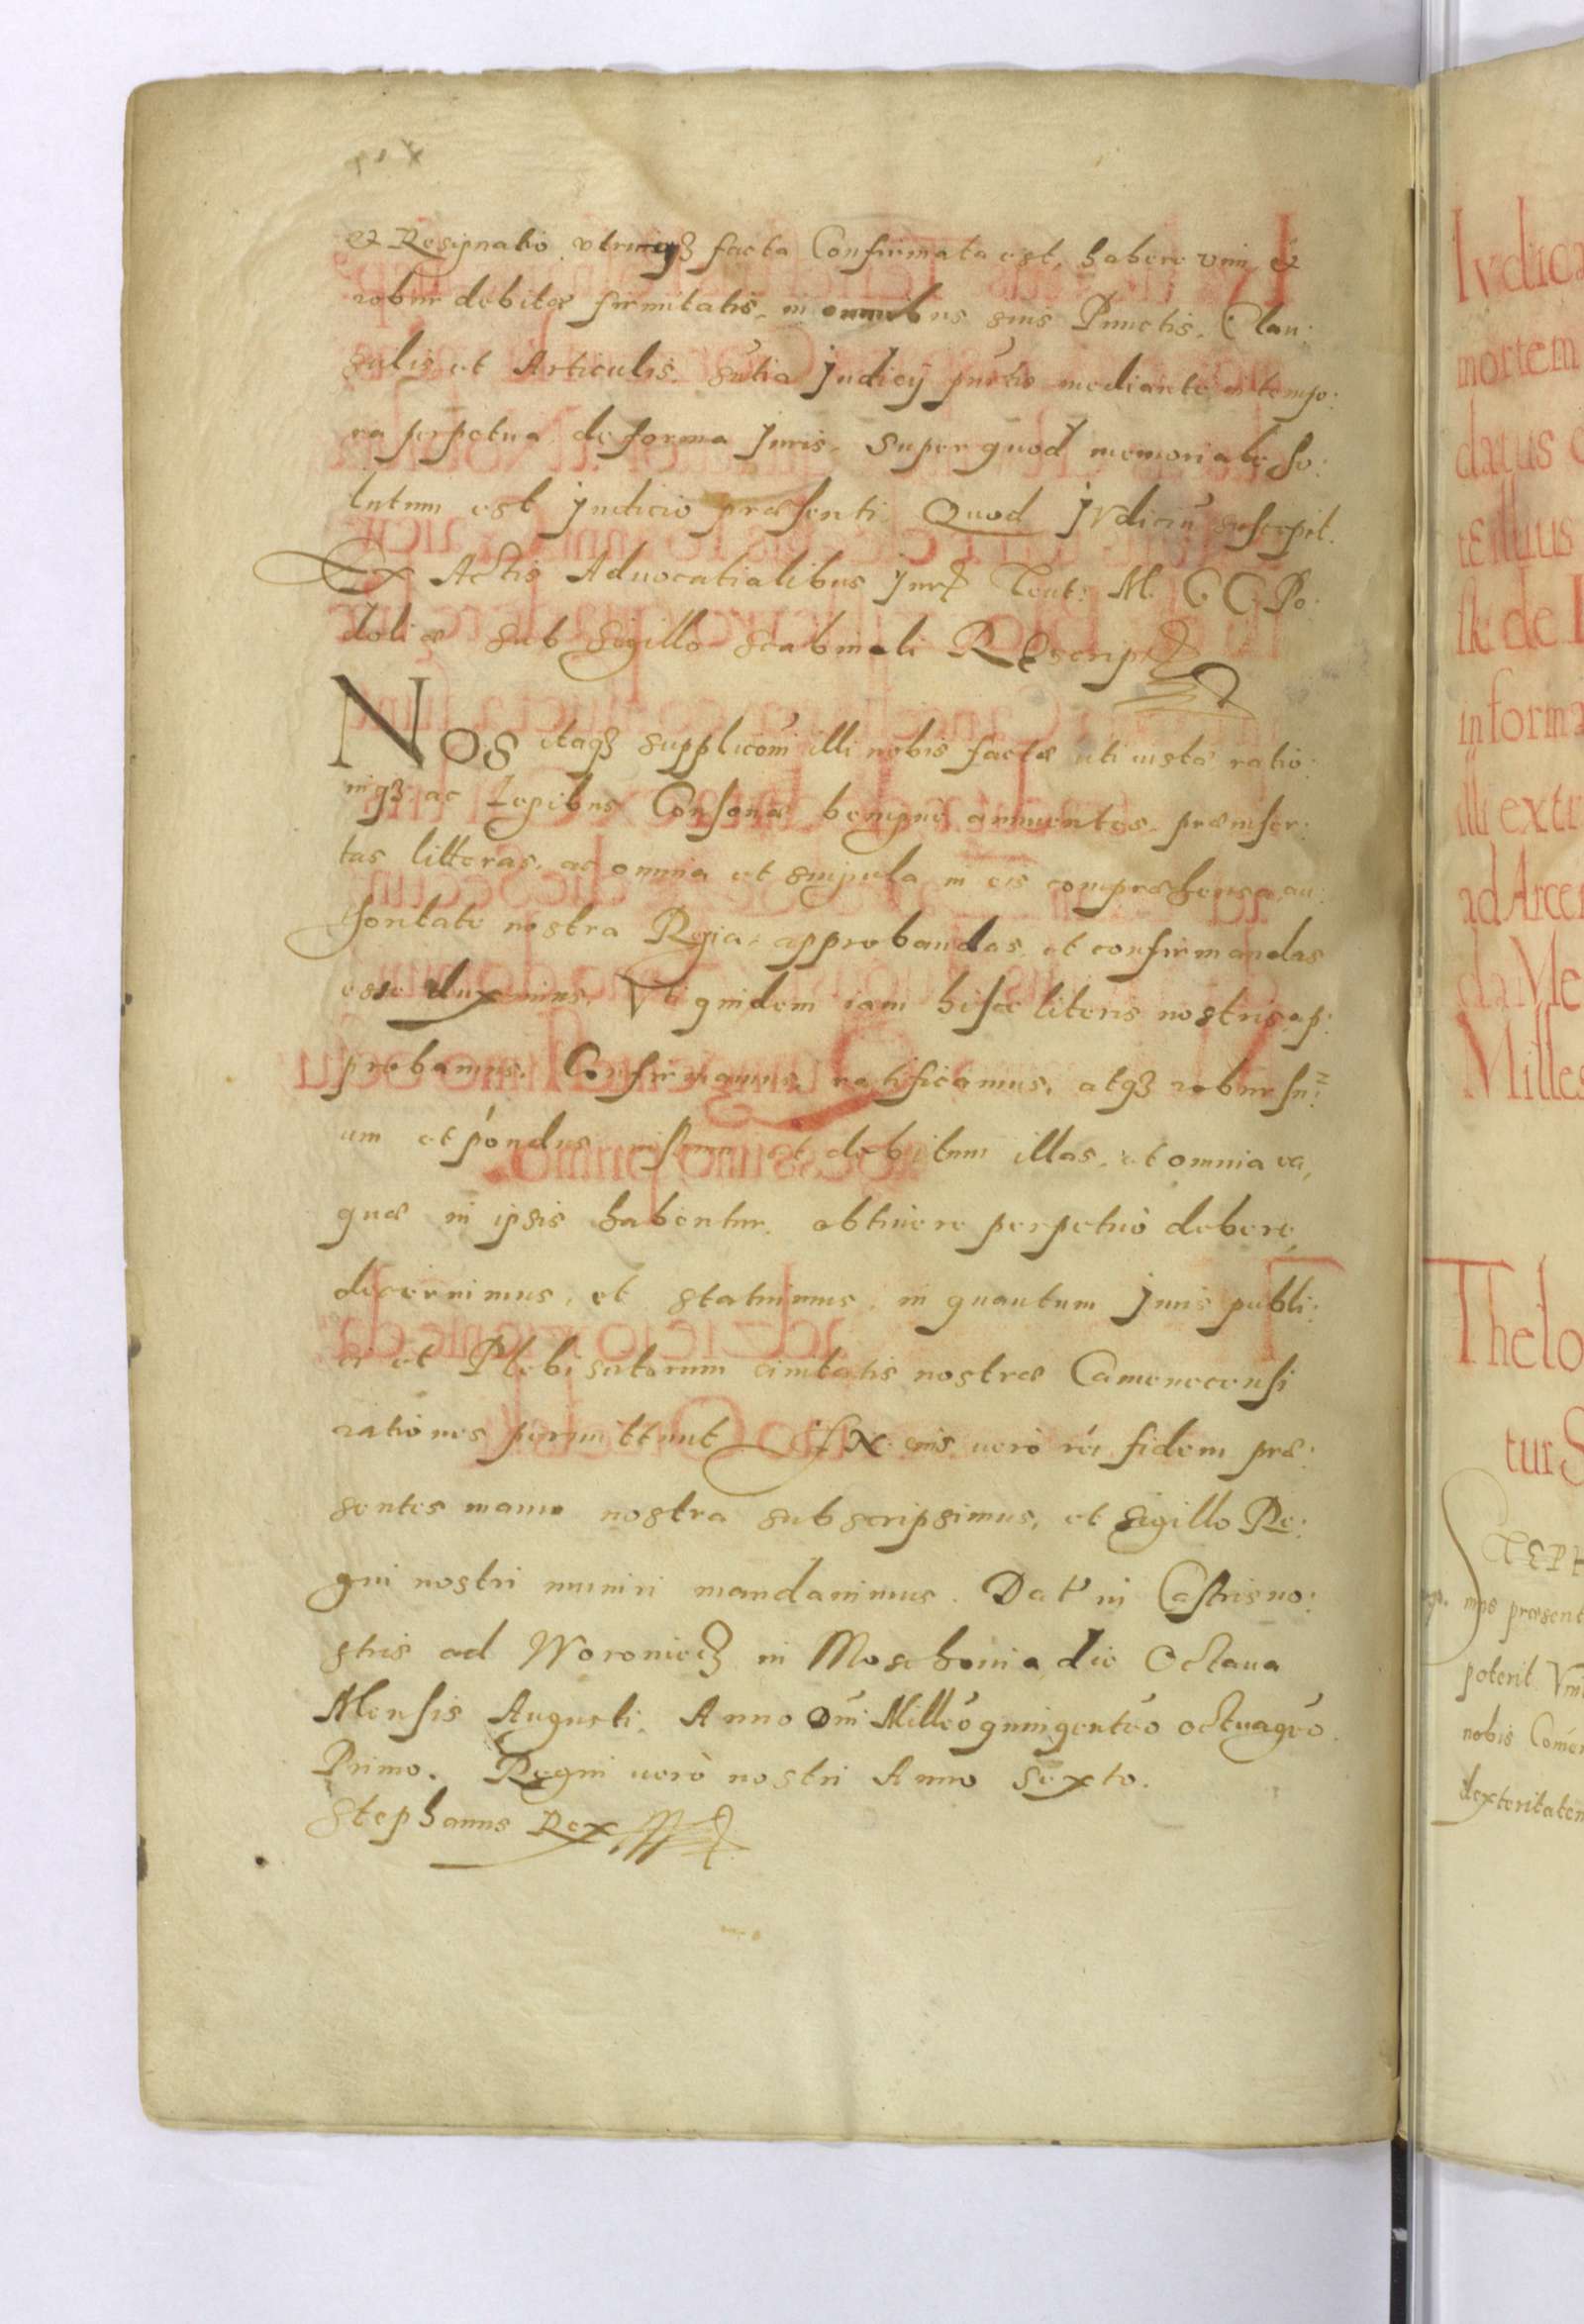 & Resignatio utrinqꝫ facta Confirmata est, habere vim, &
robur debitæ firmitatis, in omnibus suis Punctis, Clau:
sulis, et Articulis, sn̄tia Judicij pn̄tis mediante, in tempo:
ra perpetua de forma Juris. Super quod memoriale so:
lutum est judicio præsenti. Quod Jvdiciū suscepit.
Ex Actis Aduocatialibus Jur Teut: M. C C Po:
doliæ sub sigillo scabinali Rescript
Nos itaqꝫ supplicōni illi nobis factæ uti iustæ ratio:
niqꝫ ac Legibus Consonæ benigne annuentes, præinser:
tas litteras, ac omnia et singula in eis compræhensa, au:
thoritate nostra Regia, approbandas, et confirmandas
esse duximus, Vti quidem iam hisce literis nostris ap:
probamus, Confirmamus, ratificamus, atqꝫ robur su:
um et póndus et debitum illas, et omnia ea,
quæ in ipsis habentur, obtinere perpetuò debere,
decernimus, et statuimus, in quantum Juris publi:
ci et Plebiscitorum ciuitatis nostræ Camenecensi
rationes permittunt. In cuis uerò rei fidem præ:
sentes manu nostra subscripsimus, et sigillo Re:
gni nostri muniri mandauimus. Dat in Castris no:
stris ad Woroniecꝫ in Moschouia die Octaua
Mensis Augusti, Anno Dn̄i Millēo quingentēo octuagēo
Primo. Regni uerò nostri Anno Sexto.
Stephanus Rex
Ivdica
mortem
datus
illius
sk de
in forma
illi extr
ad Arce
da Me
Milles
Thelo
tur S
mus præsent
poterit Vni
nobis Comen
dexteritatem